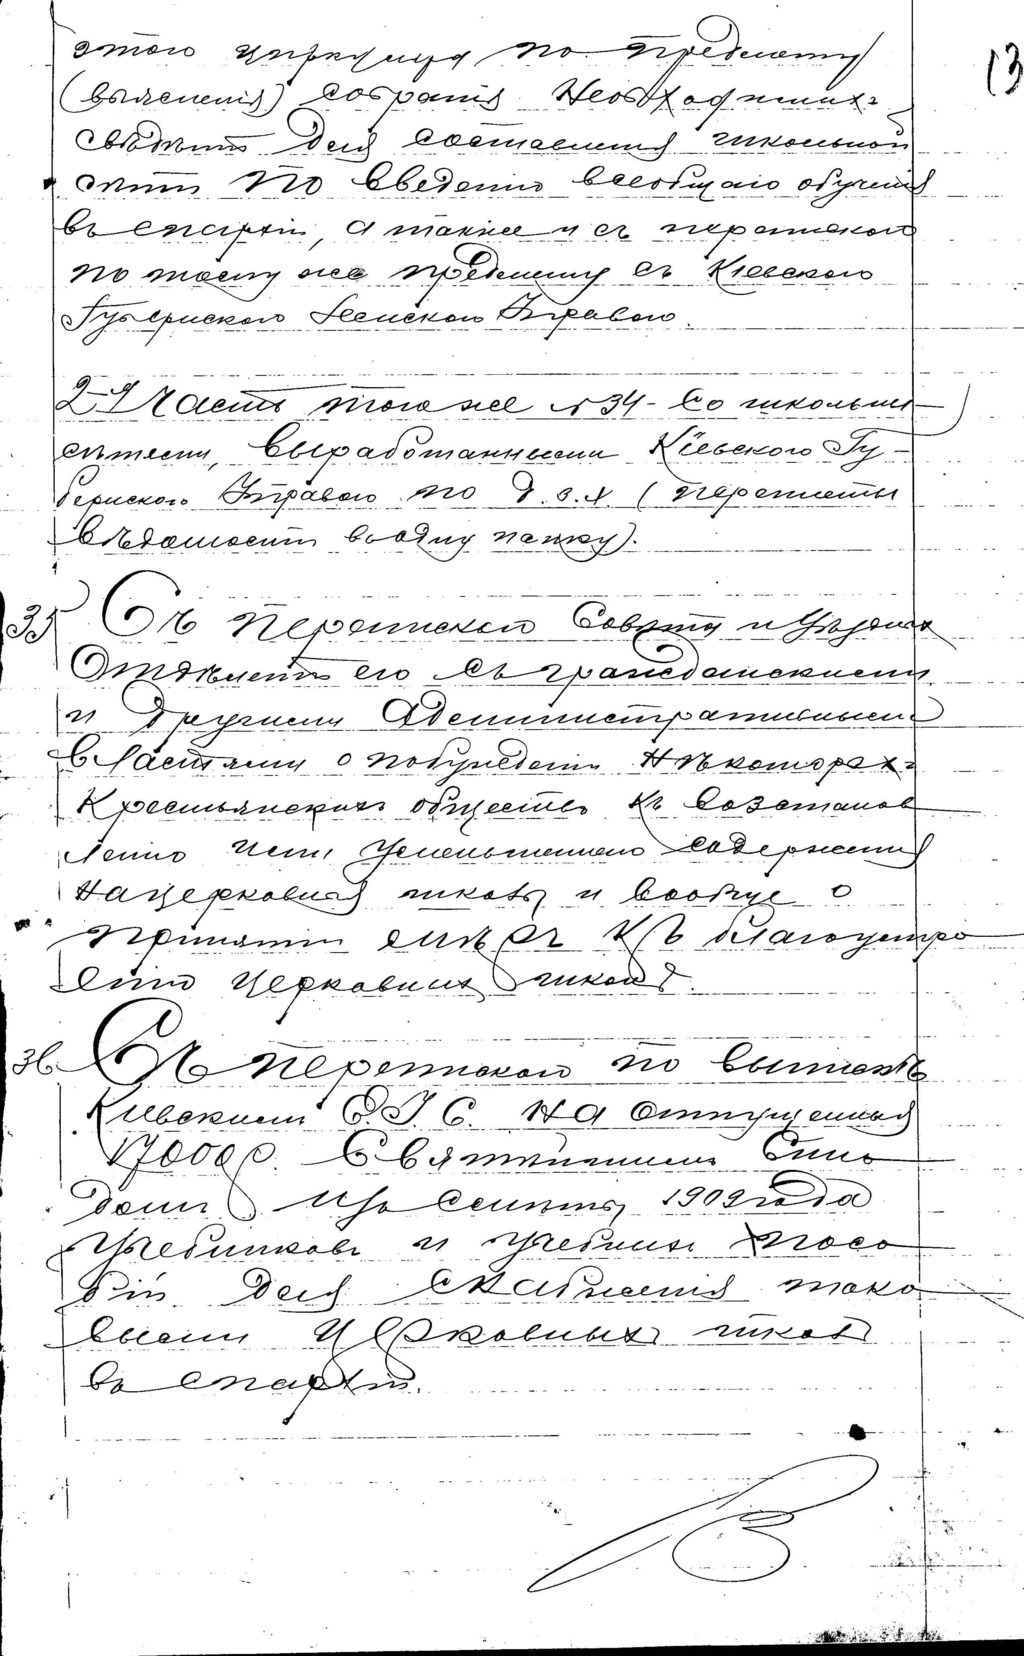 13
этого циркуляра по предмету
(выясненія) собранія необходимых
свѣдѣній для составленія школьной
сѣти по введенію всеобщаго обученія
въ епархіи, а также и съ перепискою
по тому же предмету съ Кіевскою
Губернскою Земскою Управою.
2-я Часть того же № 34 - со школьными
сѣтями, выработанными Кіевскою Гу-
бернскою Управою по д. з. х. (переплеты
вѣдомости въ одну папку).
35 Съ перепискою Совѣта и Уѣздных
Отдѣленій его съ гражданскими
и другими административными
властями о побужденіи нѣкоторых
крестьянских обществъ къ возстанов
ленію ими уменьшеннаго содержанія
на церковныя школы и вообще о
принятіи мѣръ къ благоустро
енію церковных школъ.
36 Съ перепискою по выпискѣ
Кіевским Е. У. С. на отпущенныя
17000 р. Святѣйшим Сино
дом из сентя 1909 года
учебников и учебных посо
бій для снабженія тако
выми церковных школ
въ епархіи.